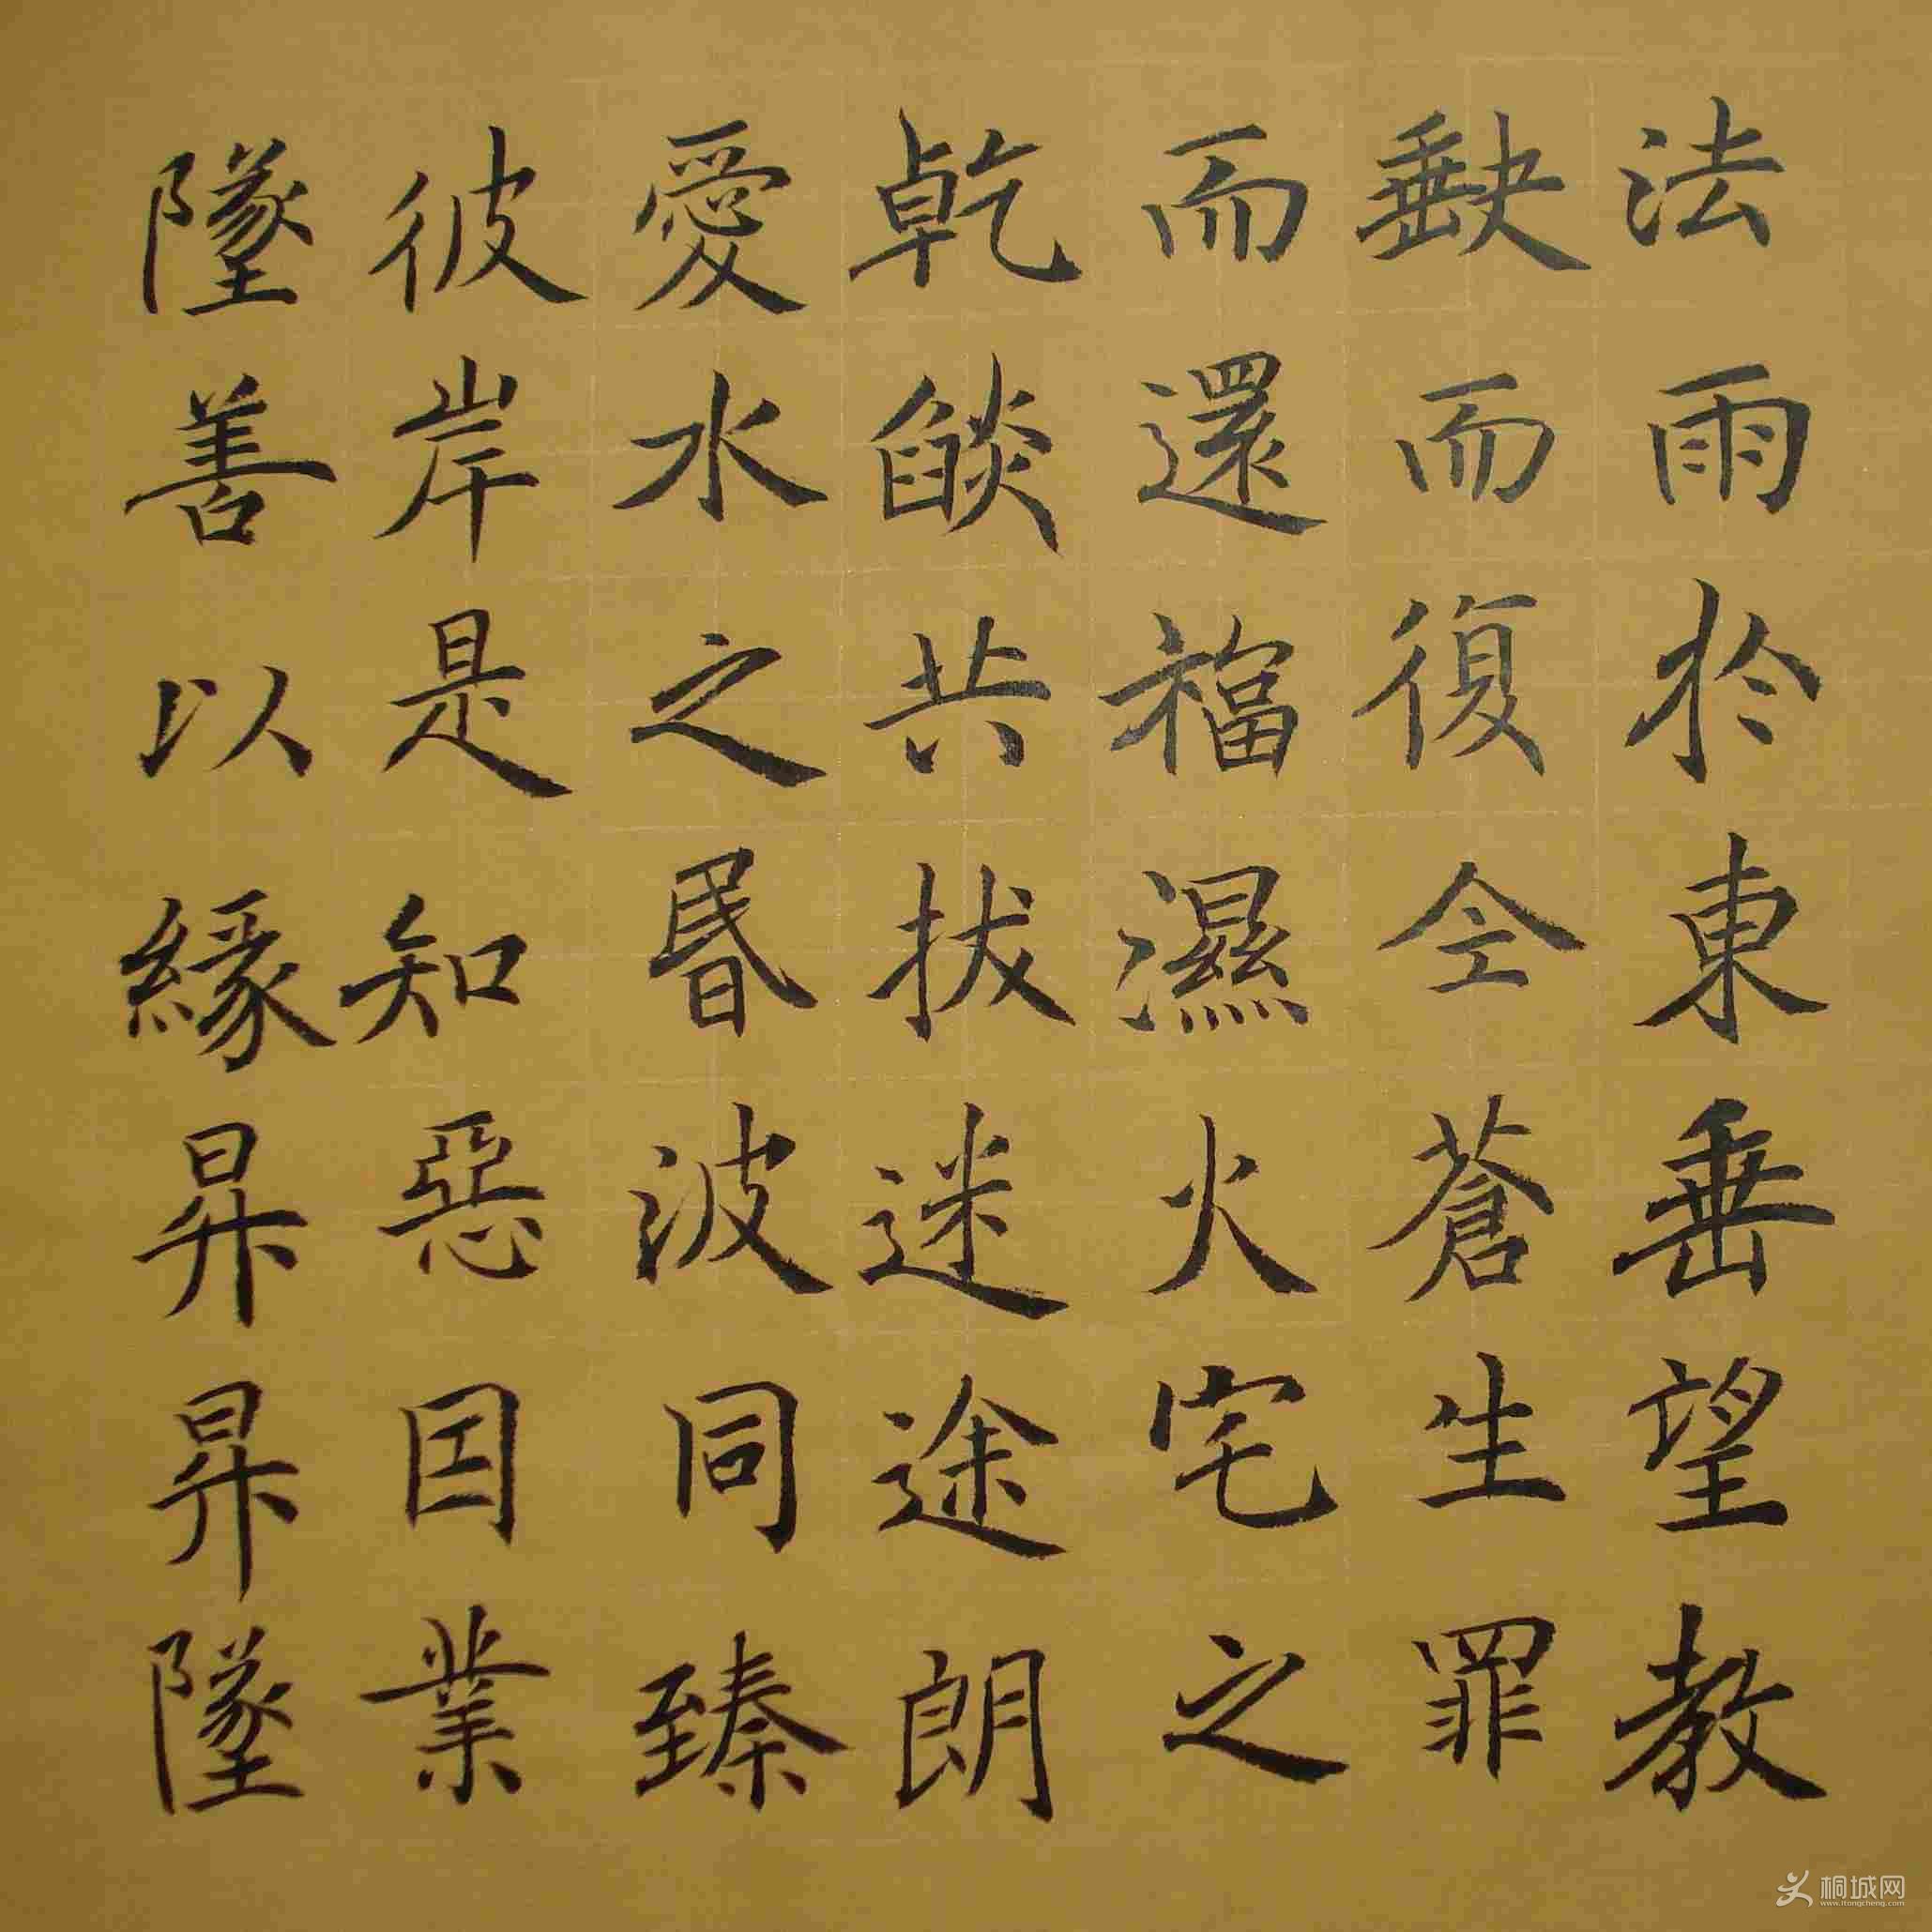 法雨於東垂望教
缺而復全蒼生罪
而還福濕火宅之
乾燄共拔迷途朗
愛水之昏波同臻
彼岸是知惡因業
墜善以緣昇昇墜
桐城网
www.itongcheng.com